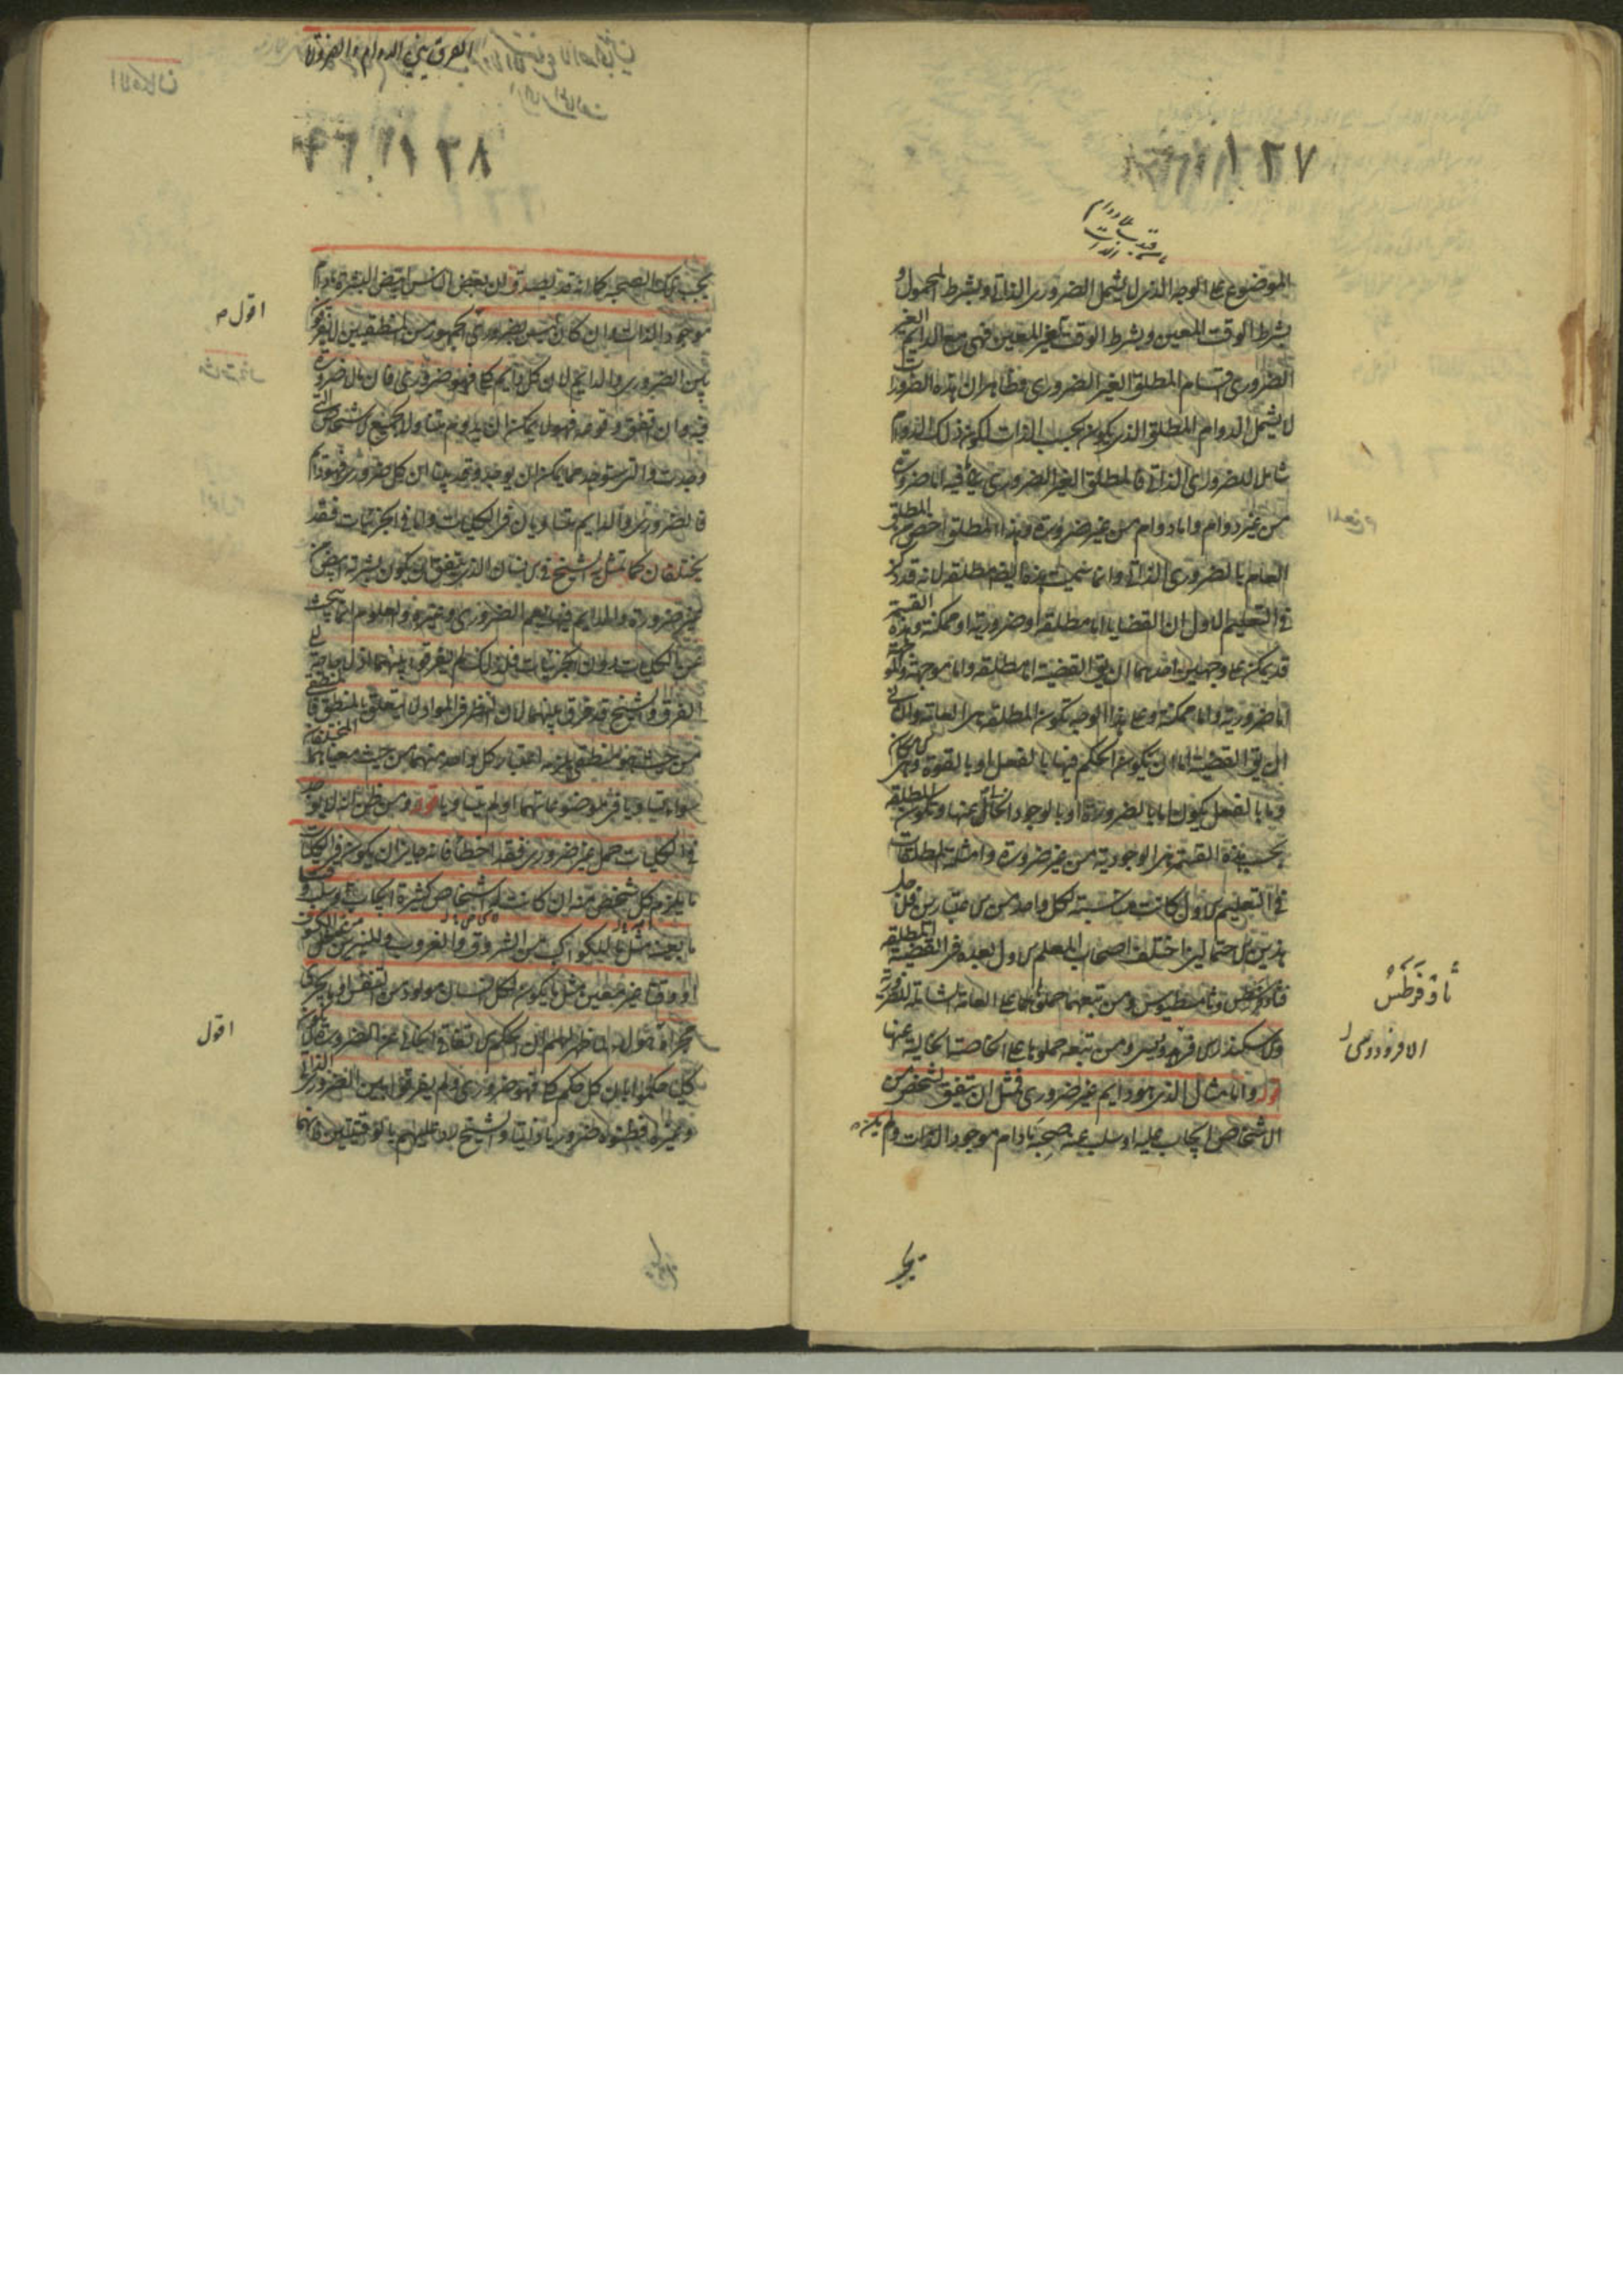 ١٢٧
الموضوع على الوجه الذى لا يشمل الضرورى الذاتى او بشرط المحمول و
بشرط الوقت المعين وبشرط الوقت الغير المعين فهى مع الدايم الغير
الضرورى اقسام المطلق الغير الضرورى وظاهر ان هذه الضرورات
لا يشمل الدوام المطلق الذى يكون بحسب الذات لكون ذلك الدوام
شاملا للضرورى الذاتى فالمطلق الغير الضرورى ما فيه اما ضرورة
من غير دوام واما دوام من غير ضرورة وهذا المطلق اخص من المطلق
العام بالضرورى الذاتى وانما سميت هذه ايضا مطلقة لانه قد ذكر
فى التعليم الاول ان القضايا اما مطلقة او ضرورية او ممكنة وهذه القسمة
قد يمكن على وجهين احدهما ان يق القضية اما مطلقة واما موجهة والموجهة
اما ضرورية واما ممكنة وعلى هذا الوجه تكون المطلقة هى العامة والثانى
ان يق القضية اما ان يكون الحكم فيها بالفعل او بالقوة وهى الامكان
وما بالفعل يكون اما بالضرورة او بالوجود الخالى عنها وتكون المطلقة
بحسب هذه القسمة هى الوجودية من غير ضرورة وامثلة المطلقات
فى التعليم الاول كانت مناسبة لكل واحد من الاعتبارين فلاجل
هذين الاحتمالين اختلف اصحاب المعلم الاول بعده فى القضية المطلقة
وثامسطيوس ومن تبعهما حملوها على العامة الشاملة للضرورة
والاسكندر ومن تبعه حملوها على الخاصة الخالية عنها
قوله واما مثال الذى هو دايم غير ضرورى فمثل ان يتفق لشخص من
الاشخاص ايجاب عليه او سلب عنه صحبه مادام موجود الذات ولم يكن
يجب
ثاوفرطس
الافرودوسى
الفرق بين الدوام والضرورة
١٢٨
يجب تلك الصحبة كما انه قد يصدق ان بعض الناس ابيض البشرة مادام
موجود الذات وان كان ليس بضرورى الجمهور من المنطقيين لم يفرقوا
بين الضرورى والدايم لان كل دايم كلى فهو ضرورى فان ما لا ضرورة
فيه وان اتفق وقوعه فهو لا يمكن ان يدوم متناولا لجميع الاشخاص التى
وجدت والتى ستوجد مما يمكن ان يوجد وقد بينا ان كل ضرورى فهو دايم
فالضرورى والدايم متساويان فى الكليات واما فى الجزئيات فقد
يختلفان كما تمثل به الشيخ فى الانسان الذى يتفق ان يكون بشرته ابيض من
غير ضرورة والدايم فيها يعم الضرورى وغيره والعلوم انما يبحث
عن الكليات دون الجزئيات فلذلك لم يفرقوا بينهما اذ لا حاجة الى
الفرق والشيخ قد فرق بينهما لان النظر فى المواد لا يتعلق بالمنطق فالمنطقى
من حيث هو منطقى يلزمه اعتبار كل واحد منهما من حيث معنياهما المختلفان
سواء تساويا فى موضوعاتهما او لم يتساويا قوله ومن ظن انه لا يوجد
فى الكليات حمل غير ضرورى فقد اخطا فانه جايز ان يكون فى الكليات
ما يلزم كل شخص منه ان كانت له اشخاص كثيرة ايجاب او سلب وقتا
ما بعينه مثل ما للكواكب من الشروق والغروب وللنيرين من الكسوف
او وقتا غير معين مثل ما يكون لكل انسان مولود من التنفس او ما يجرى
مجراه اقول لما ظهر لهم ان الحكم الاتفاقى الخالى عن الضرورة لا يكون
كليا حكموا بان كل حكم كلى فهو ضرورى ولم يفرقوا بين الضرورى الذاتى
وغيره فظنوه ضروريا ذاتيا والشيخ رد عليهم بالوقتيتين فانهما
اقول
اقول